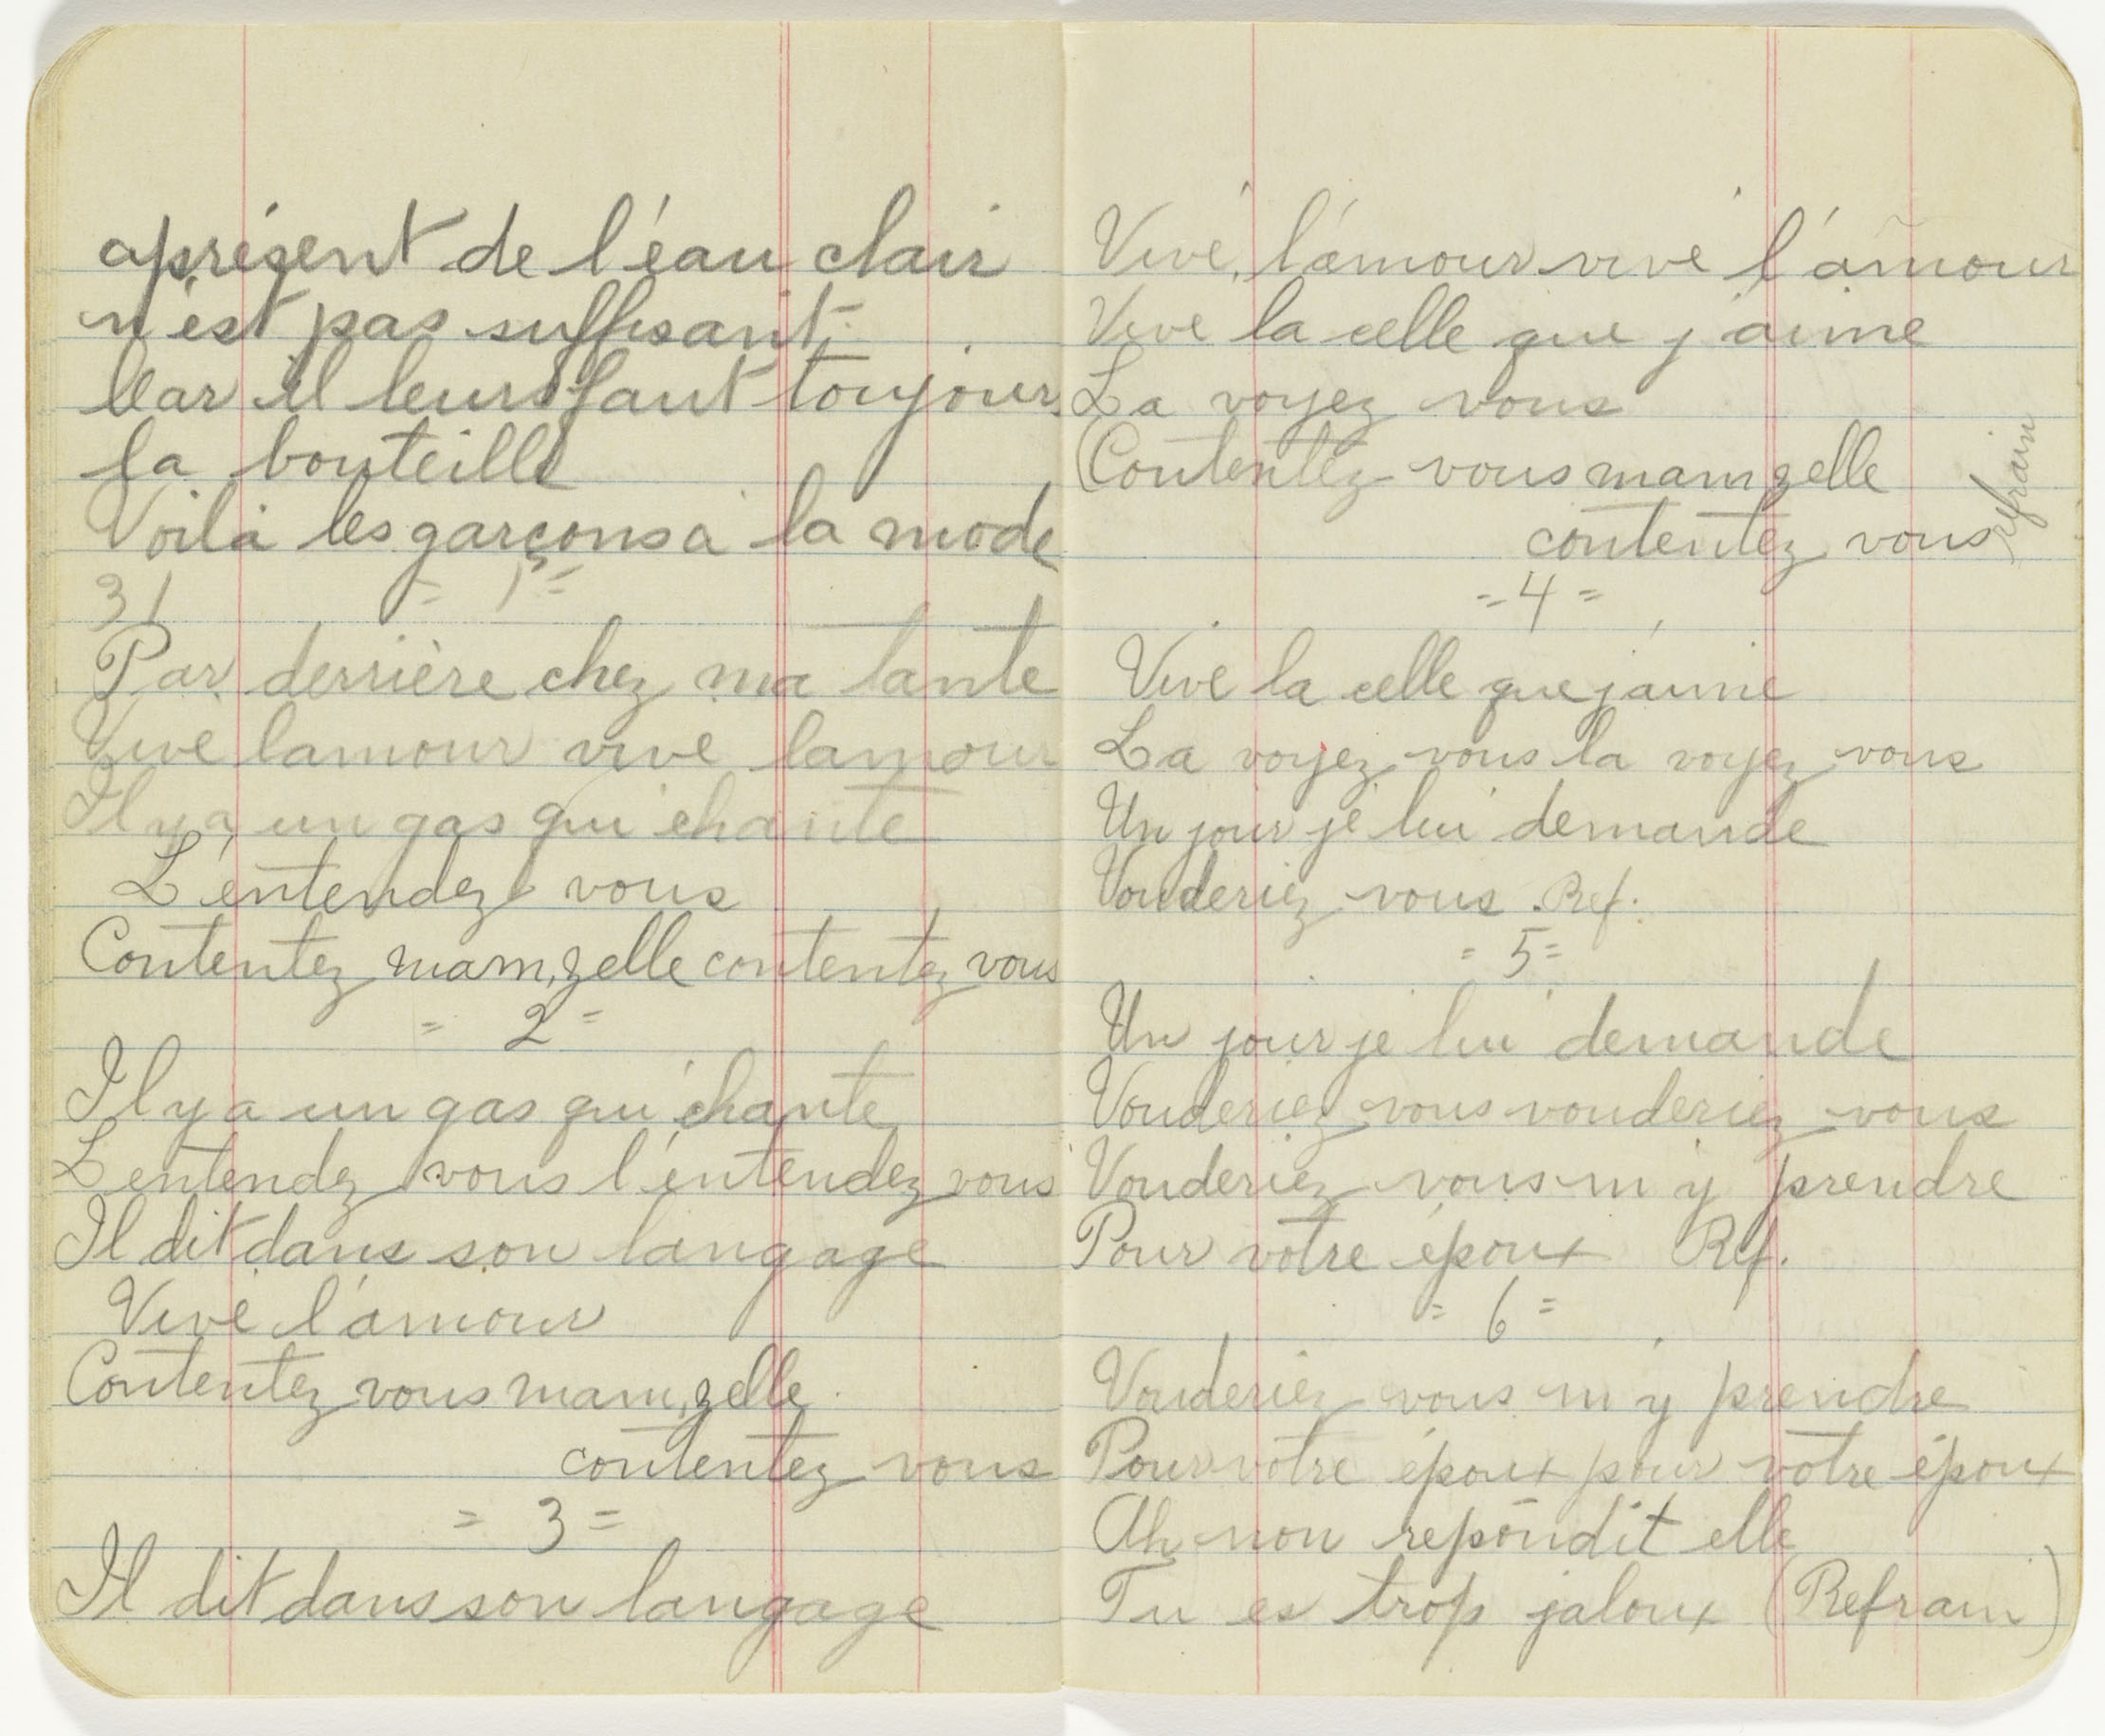 aprésent de l'éau clair
n'est pas suffisant
Car il leurs faut toujours
la bouteille
Voilà les garçons à la mode
31 = 1 =
Par derrière chez ma tante
Vive lamour vive lamour
Il y a un gas qui chante
L'entendez vous
Contentez mam,zelle contentez vous
= 2 =
Il y a un gas qui chante
L'entendez vous l'entendez vous
Il dit dans son langage
Vive l'amour
Contentez vous mam,zelle
contentez vous
= 3 =
Il dit dans son langage
Vive l'amour vive l'amour
Vive la celle que j'aime
La voyez vous
(Contentez vous mamzelle
contentez vous
refrain
= 4 =
Vive la celle que j'aime
La voyez vous la voyez vous
Un jour je lui demande
Vouderiez vous . Ref.
= 5 =
Un jour je lui demande
Vouderiez vous vouderiez vous
Vouderiez vous m'y prendre
Pour votre époux Ref.
= 6 =
Vouderiez vous m'y prendre
Pour votre époux pour votre époux
Ah non repondit elle
Tu es trop jaloux (Refrain)